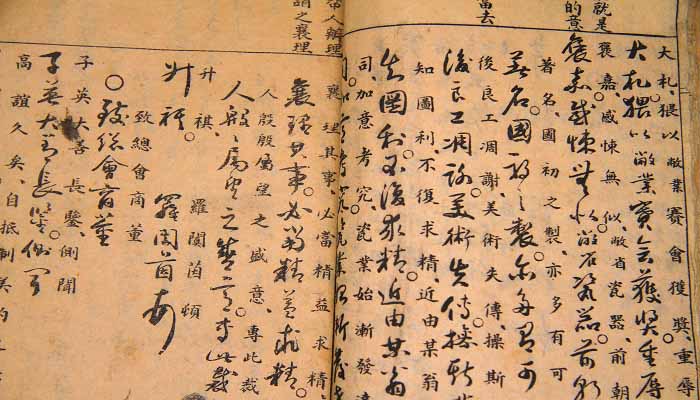 就是
的意
當去
大札。猥以敝業賽會獲獎。重辱
大札。猥以敝業賽會獲獎。重辱
褒嘉。感悚無似。敝省瓷器。前朝
褒嘉。感悚無似。敝省瓷器。前朝
著名。國初之製。亦多有可
著名。國初之製。亦多有可
後良工凋謝。美術失傳。操斯
後良工凋謝。美術失傳。操斯
知圖利。不復求精。近由某翁
知圖利。不復求精。近由某翁
司。加意考究。瓷業始漸發達
帝人辦理
謂之襄理
襄理其事。必當精益求精
襄理其事。必當精益求精。
人殷殷屬望之盛意。專此裁
人殷殷屬望之盛意。專此裁
升祺 羅闓茵頓
升祺 羅闓茵頓
致總會商董
○致總會商董
子英大善長鑒。側聞
子英大善長鑒。側聞
高誼久矣。自抵制美約